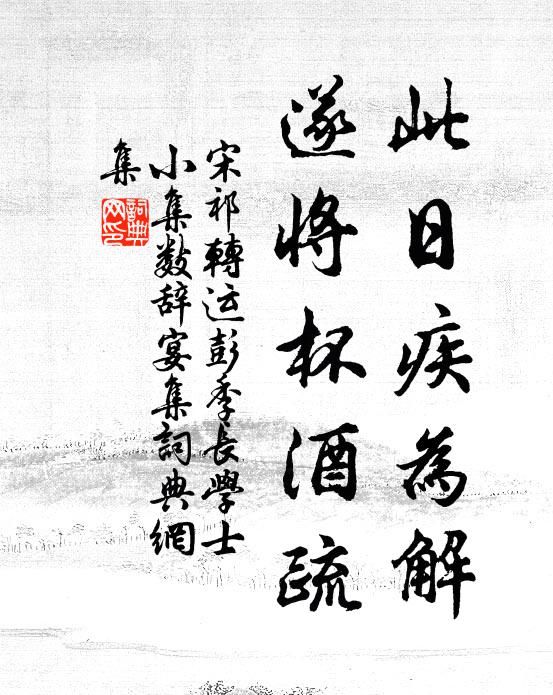 此日疾為解
遂將杯酒疏
宋祁轉运彭季長學士
小集数辞宴集詞典網
集
詞典网印